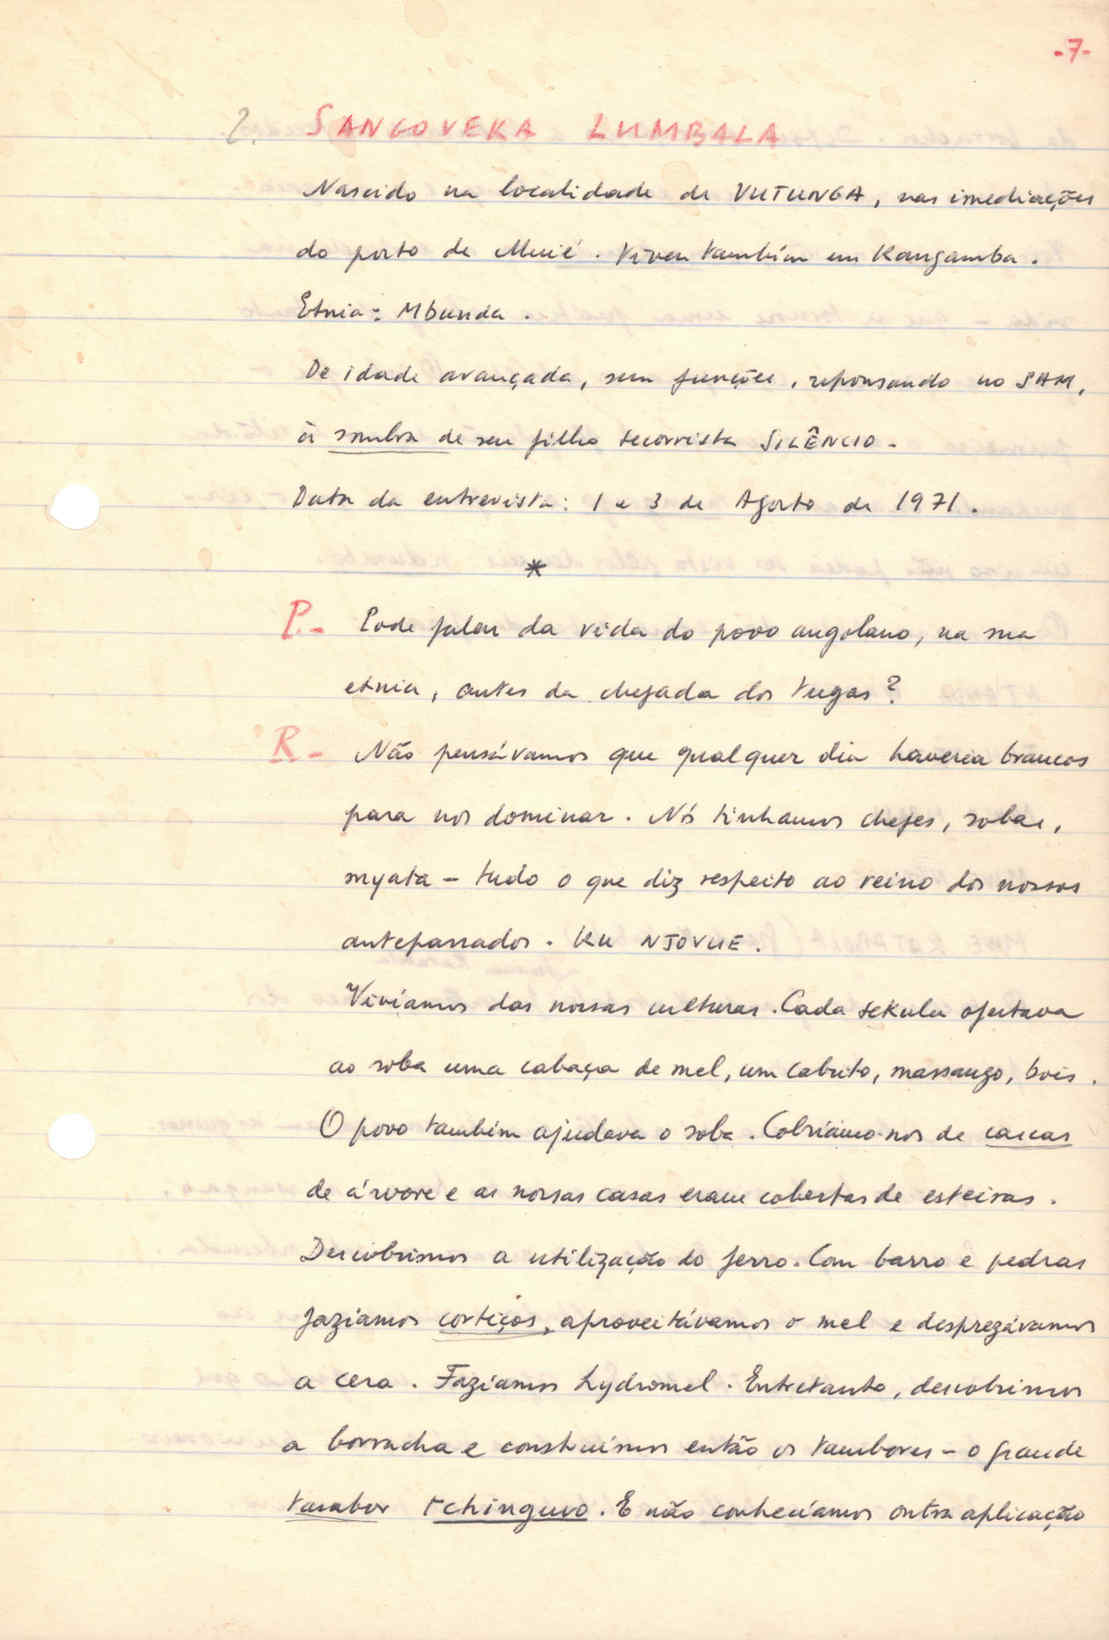 -7-
2. SANGOVEKA LUMBALA
Nascido na localidade de VUTUNGA, nas imediações
do posto de Muié. Viveu também em Kangamba.
Etnia: Mbunda.
De idade avançada, sem funções, repousando no SAM,
à sombra de seu filho socorrista SILÊNCIO.
Data da entrevista: 1 e 3 de Agosto de 1971.
*
P.- Pode falar da vida do povo angolano, na sua
etnia, antes da chegada dos tugas?
R- Não pensávamos que qualquer dia haveria brancos
para nos dominar. Nós tinhamos chefes, sobas,
myata - tudo o que diz respeito ao reino dos nossos
antepassados. KU NJOVUE.
Vivíamos das nossas culturas. Cada sekulu ofertava
ao soba uma cabaça de mel, um cabrito, massango, bois.
O povo também ajudava o soba. Cobríamo-nos de cascas
de árvore e as nossas casas eram cobertas de esteiras.
Descobrimos a utilização do ferro. Com barro e pedras
fazíamos cortiços, aproveitávamos o mel e desprezávamos
a cera. Fazíamos hydromel. Entretanto, descobrimos
a borracha e construímos então os tambores - o grande
tambor tchinguvo. E não conhecíamos outra aplicação